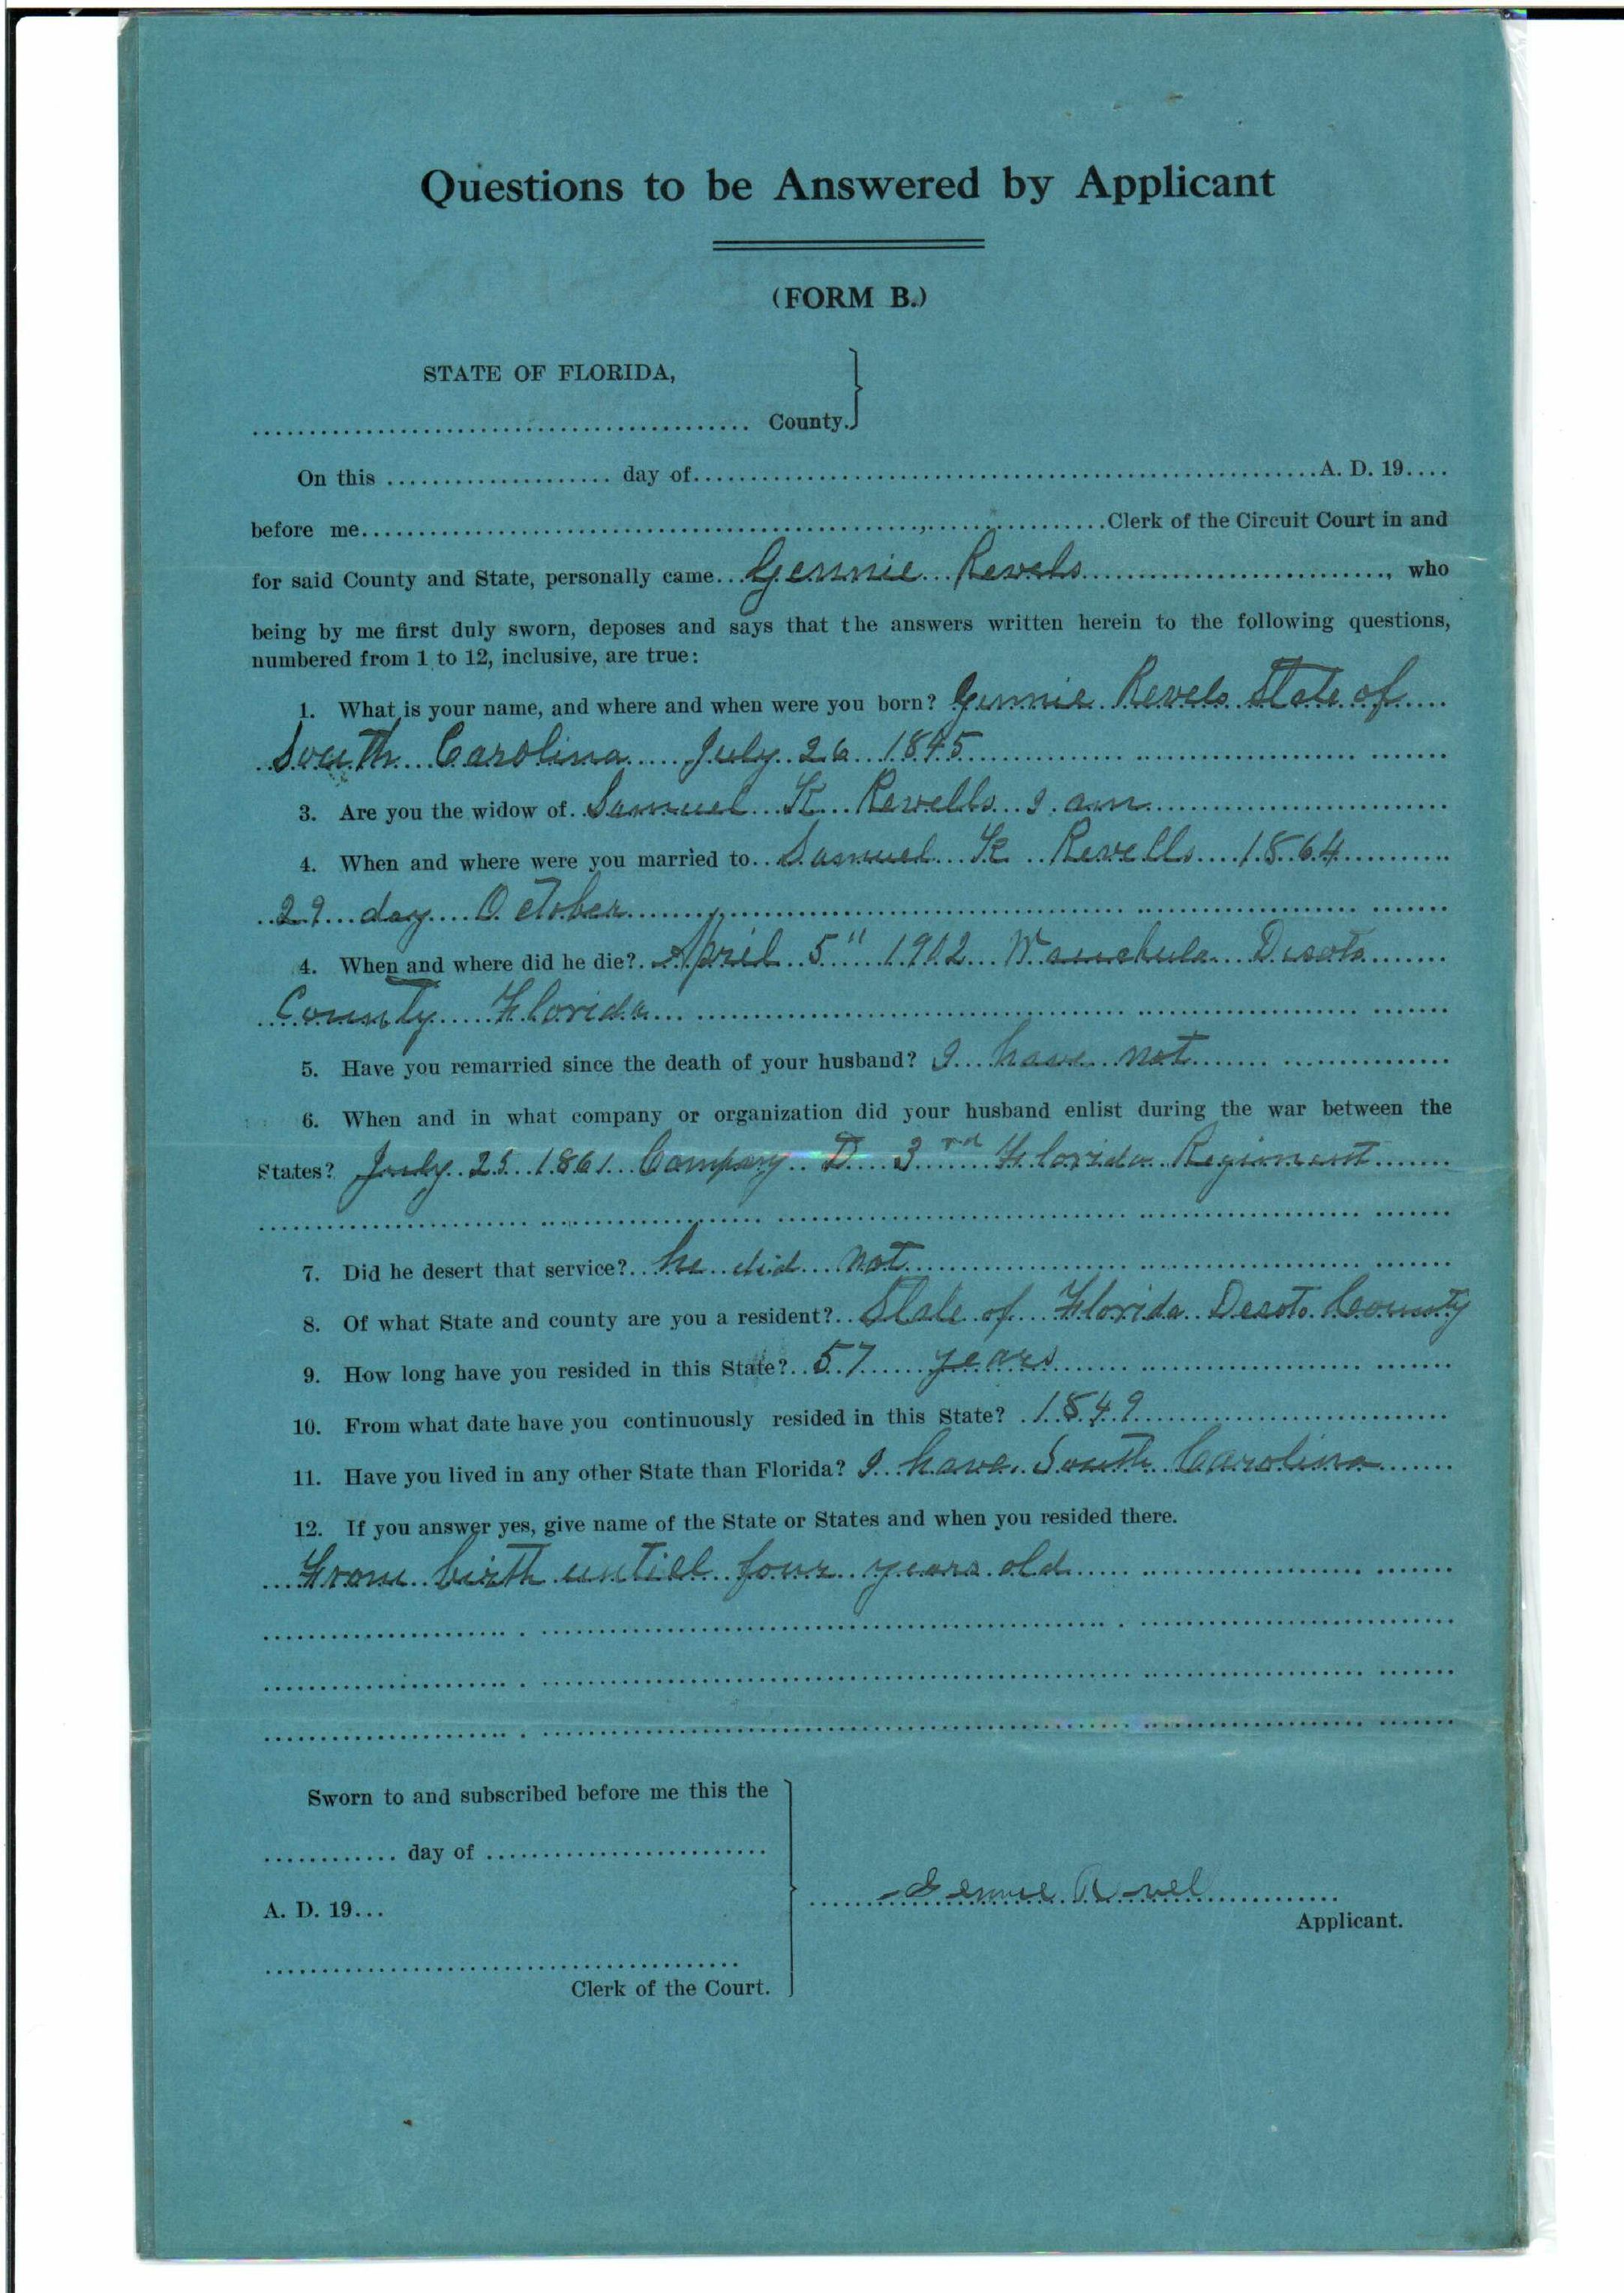 Questions to be Answered by Applicant
(FORM B.)
STATE OF FLORIDA,
County.
On this day of A. D. 19
before me Clerk of the Circuit Court in and
for said County and State, personally came Gennie Revels, who
being by me first duly sworn, deposes and says that the answers written herein to the following questions,
numbered from 1 to 12, inclusive, are true:
1. What is your name, and where and when were you born? Gennie Revels State of
South Carolina July 26 1845
3. Are you the widow of Samuel K Revells I am
4. When and where were you married to Samuel K Revells 1864
29 day October
4. When and where did he die? April 5" 1902 Wauchula Desoto
County Florida
5. Have you remarried since the death of your husband? I have not
6. When and in what company or organization did your husband enlist during the war between the
States? July 25 1861 Company D 3rd Florida Regiment
7. Did he desert that service? he did not
8. Of what State and county are you a resident? State of Florida Desoto County
9. How long have you resided in this State? 57 years
10. From what date have you continuously resided in this State? 1849
11. Have you lived in any other State than Florida? I have South Carolina
12. If you answer yes, give name of the State or States and when you resided there.
From birth untill four years old
Sworn to and subscribed before me this the
day of
A. D. 19
Gennie Revel
Applicant.
Clerk of the Court.